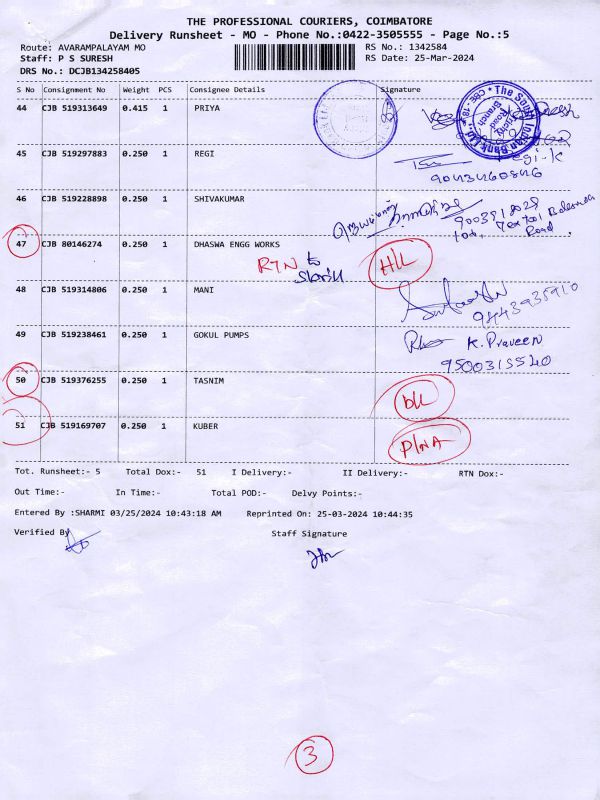 THE PROFESSIONAL COURIERS, COIMBATORE
Delivery Runsheet - MO - Phone No.:0422-3505555 - Page No.:5
Route: AVARAMPALAYAM MO RS No.: 1342584
Staff: P S SURESH RS Date: 25-Mar-2024
DRS No.: DCJB134258405
S No Consignment No Weight PCS Consignee Details Signature
44 CJB 519313649 0.415 1 PRIYA
45 CJB 519297883 0.250 1 REGI
9043460846
46 CJB 519228898 0.250 1 SHIVAKUMAR
Road
47 CJB 80146274 0.250 1 DHASWA ENGG WORKS
RTN to
48 CJB 519314806 0.250 1 MANI
9443935910
49 CJB 519238461 0.250 1 GOKUL PUMPS K. Praveen
9500315540
50 CJB 519376255 0.250 1 TASNIM DLL
51 CJB 519169707 0.250 1 KUBER P/NA
Tot. Runsheet:- 5 Total Dox:- 51 I Delivery:- II Delivery:- RTN Dox:-
Out Time:- In Time:- Total POD:- Delvy Points:-
Entered By :SHARMI 03/25/2024 10:43:18 AM Reprinted On: 25-03-2024 10:44:35
Verified By Staff Signature
3